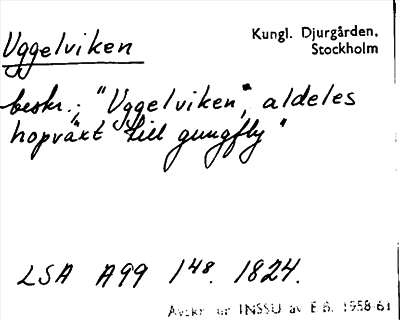 Uggelviken
Kungl. Djurgården,
Stockholm
beskr.: "Uggelviken", aldeles
hopväxt till gungfly"
LSA A99 148. 1824.
Avskr. ur INSSU av E.B. 1958-61